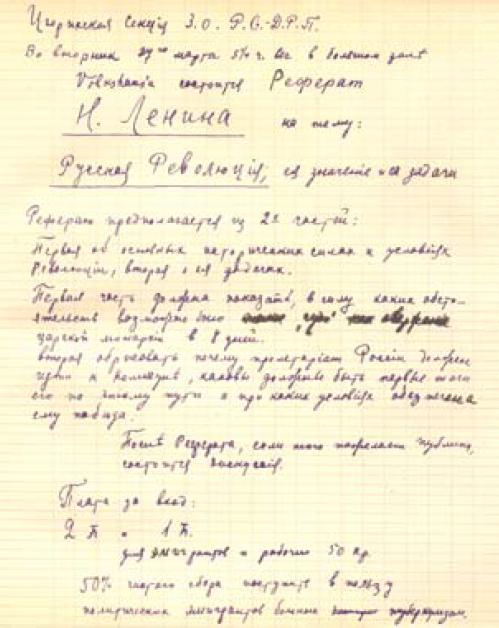 Цюрихская Секція З.О. Р.С.-Д.Р.П.
Во вторник 27го марта 5½ ч. веч. в большом залѣ
Volkshaus'а состоится Реферат
Н. Ленина на тему:
Русская Революція; ея значеніе и ея задачи
Реферат предполагается из 2х частей:
Первая об основных исторических силах и условіях
Революціи, вторая о ея задачах.
Первая часть должна показать, в силу каких обсто-
ятельств возможно было чудо
царской монархіи в 8 дней.
вторая обрисовать почему пролетаріат Россіи должен
идти к , каковы должны быть первые шаги
его по этому пути и при каких условіях обезпечена
ему побѣда.
Послѣ Реферата, если того пожелает публика,
состоится дискуссія.
Плата за вход:
2 fr. и 1 fr.
для эмигрантов и рабочих 50 кр.
50% чистаго сбора поступит в пользу
политических эмигрантов больных туберкулезом.